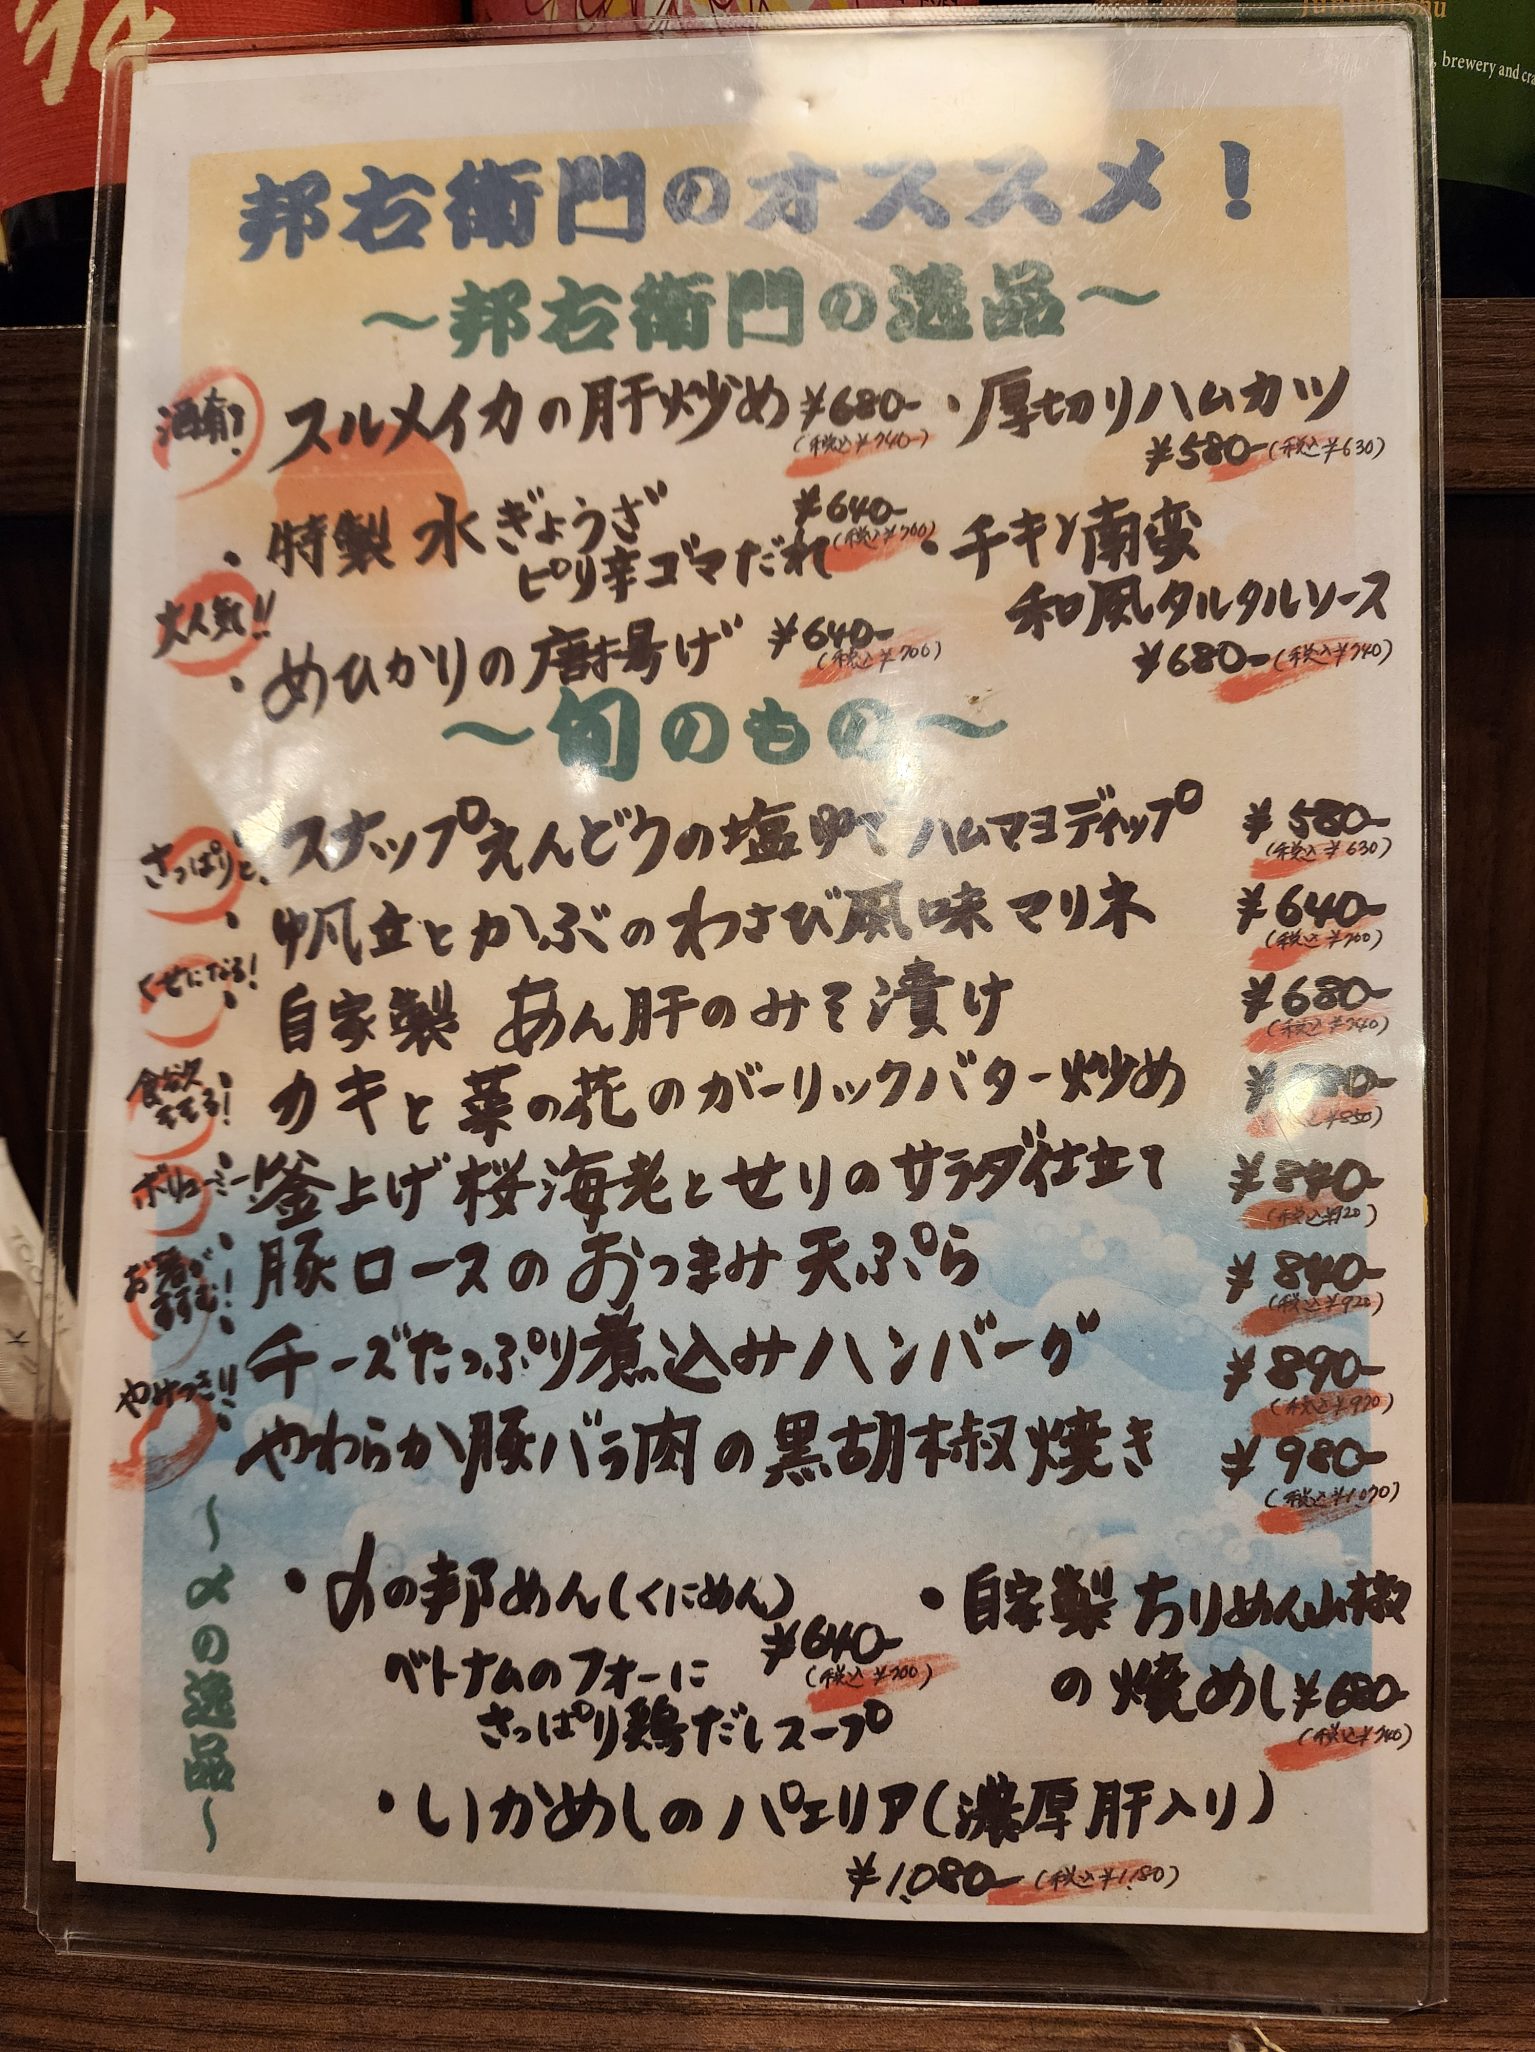 brewery and cra
邦右衛門のオススメ！
～邦右衛門の逸品～
スルメイカの肝炒め ¥680-
(税込¥740-)
・厚切りハムカツ
¥580-(税込¥630)
・特製 水ぎょうざ
ピリ辛ゴマだれ
¥640-
(税込¥700)
・チキン南蛮
和風タルタルソース
¥680-(税込¥740)
大人気!!
・めひかりの唐揚げ ¥640-
(税込¥700)
～旬のもの～
さっぱりと、
・スナップえんどうの塩ゆで ハムマヨディップ ¥580-
(税込¥630)
・帆立とかぶのわさび風味マリネ ¥640-
(税込¥700)
くせになる!
・自家製 あん肝のみそ漬け ¥680-
(税込¥740)
食欲そそる!
・カキと菜の花のガーリックバター炒め
ボリューミー!
・釜上げ桜海老とせりのサラダ仕立て ¥840-
(税込¥920)
・豚ロースのおつまみ天ぷら ¥840-
(税込¥920)
お箸がすすむ!
・チーズたっぷり煮込みハンバーグ ¥890-
(税込¥970)
やみつき!!
・やわらか豚バラ肉の黒胡椒焼き ¥980-
(税込¥1,070)
～〆の逸品～
・〆の邦めん(くにめん)
¥640-
(税込¥700)
ベトナムのフォーに
さっぱり鶏だしスープ
・自家製 ちりめん山椒
の焼めし ¥680-
(税込¥740)
・いかめしのパエリア(濃厚肝入り)
¥1,080-(税込¥1,180)